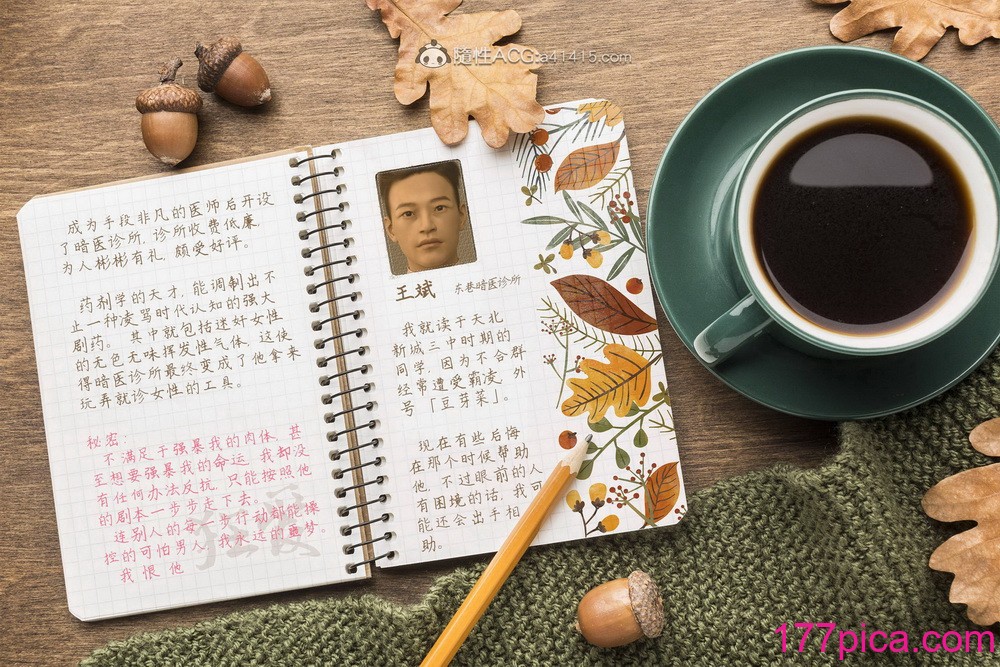 隨性ACG:a41415.com
成为手段非凡的医师后开设
了暗医诊所,诊所收费低廉,
为人彬彬有礼,颇受好评。
药剂学的天才,能调制出不
止一种凌骂时代认知的强大
剧药。其中就包括迷奸女性
的无色无味挥发性气体,这使
得暗医诊所最终变成了他拿来
玩弄就诊女性的工具。
秘密:
不满足于强暴我的肉体,甚
至想要强暴我的命运,我都没
有任何办法反抗,只能按照他
的剧本一步步走下去。
连别人的每一步行动都能操
控的可怕男人,我永远的噩梦。
我恨他
王斌 东巷暗医诊所
我就读于天北
新城三中时期的
同学,因为不合群
经常遭受霸凌,外
号「豆芽菜」。
现在有些后悔
在那个时候帮助
他,不过眼前的人
有困境的话,我可
能还会出手相
助。
177pica.com